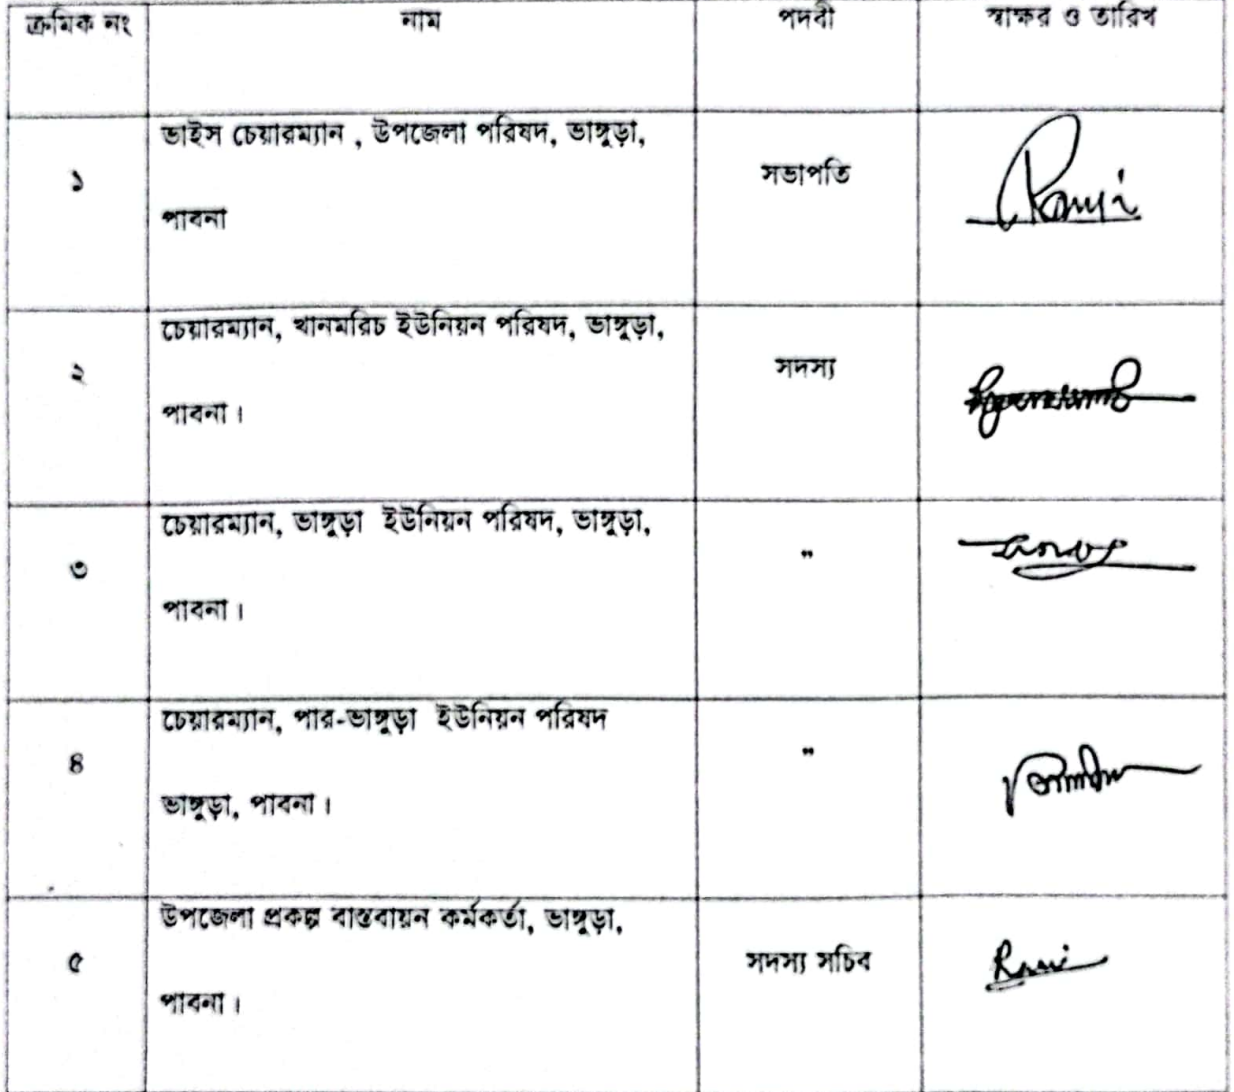 ক্রমিক নং নাম পদবী স্বাক্ষর ও তারিখ
ভাইস চেয়ারম্যান , উপজেলা পরিষদ, ভাঙ্গুড়া,
১ সভাপতি
পাবনা
চেয়ারম্যান, খানমরিচ ইউনিয়ন পরিষদ, ভাঙ্গুড়া,
২ সদস্য
পাবনা ।
চেয়ারম্যান, ভাঙ্গুড়া ইউনিয়ন পরিষদ, ভাঙ্গুড়া,
৩ "
পাবনা ।
চেয়ারম্যান, পার-ভাঙ্গুড়া ইউনিয়ন পরিষদ
৪ "
ভাঙ্গুড়া, পাবনা ।
উপজেলা প্রকল্প বাস্তবায়ন কর্মকর্তা, ভাঙ্গুড়া,
৫ সদস্য সচিব
পাবনা ।